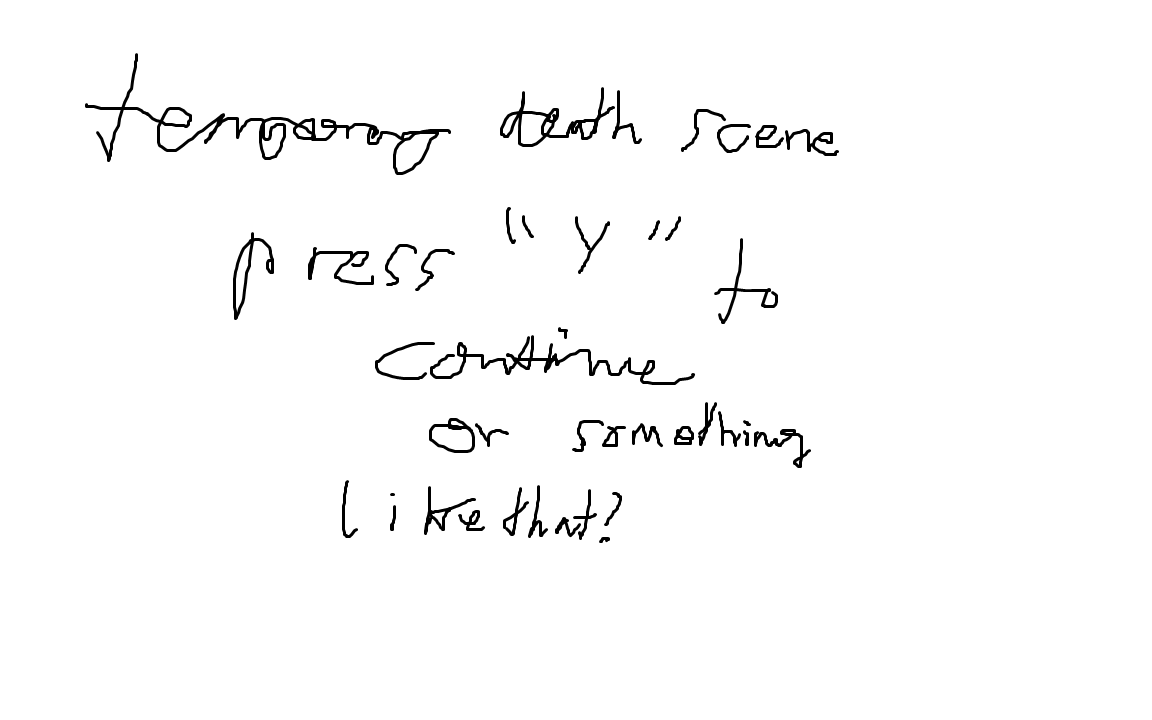 temporary death scene
press "y" to
continue
or something
like that?